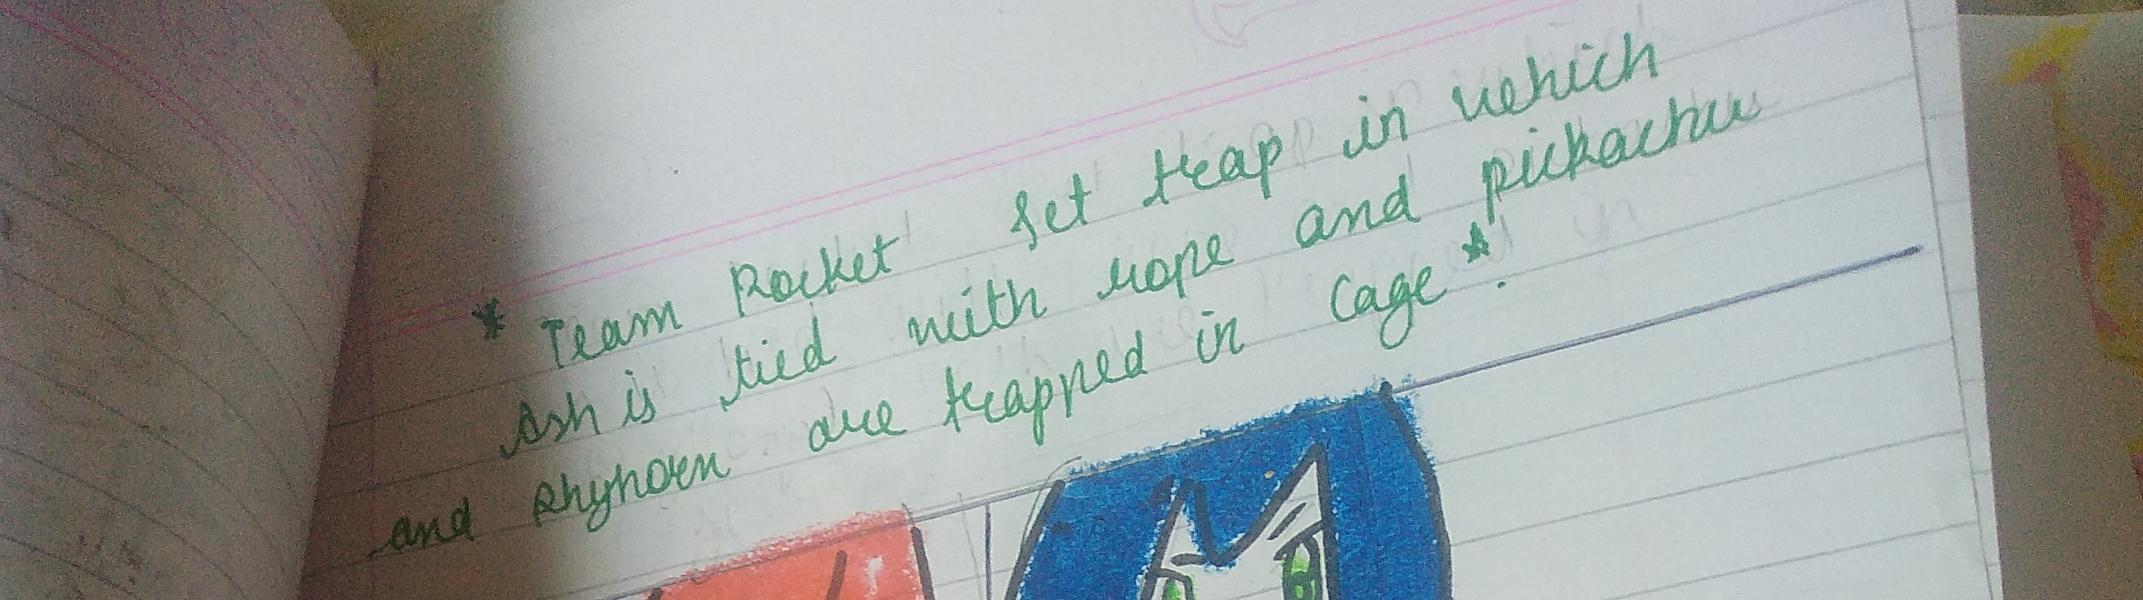 * Team Rocket set trap in which
Ash is tied with rope and pickachu
and Rhyhorn are trapped in cage *.